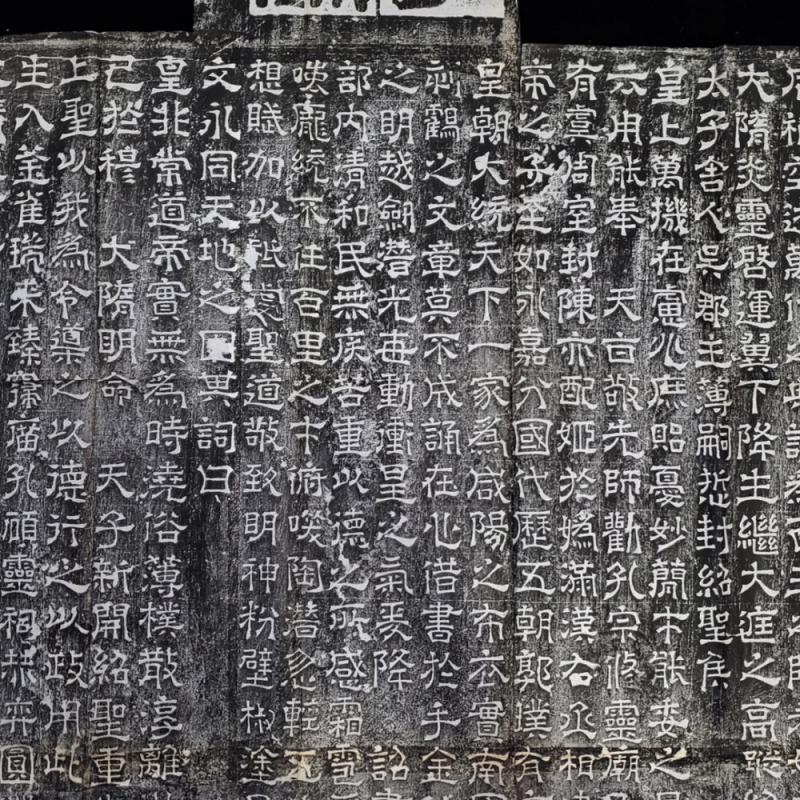 大隋炎靈啓運翼下降生繼大庭之高蹤
太子舍人吳郡主簿嗣悊封紹聖侯
皇上萬機在慮兆庶貽憂妙簡才能委之
云由能奉 天旨敬先師勸孔宗修靈廟
有虞周室封陳亦配姬於媯滿漢右丞相
帝之子至如永嘉分國代歷五朝郭璞有
皇朝大統天下一家為咸陽之布衣實南
之文章莫不成誦在心借書於手金
之明越劍潛光每動衝星之氣爰降 詔
部内清和民無疾苦重以德之所感霜雪
龐統不任百里之才俯嘆陶潛忽輕五
想賦加以祗虔聖道敬致明神粉壁椒塗
文永同天地之其詞曰
皇非常道帝實無為時澆俗薄樸散淳離
已於穆 大隋明命 天子新開紹聖重
上聖以我為令導之以德行之以政用此
雀瑞來臻孔廟靈祠恭弈圓